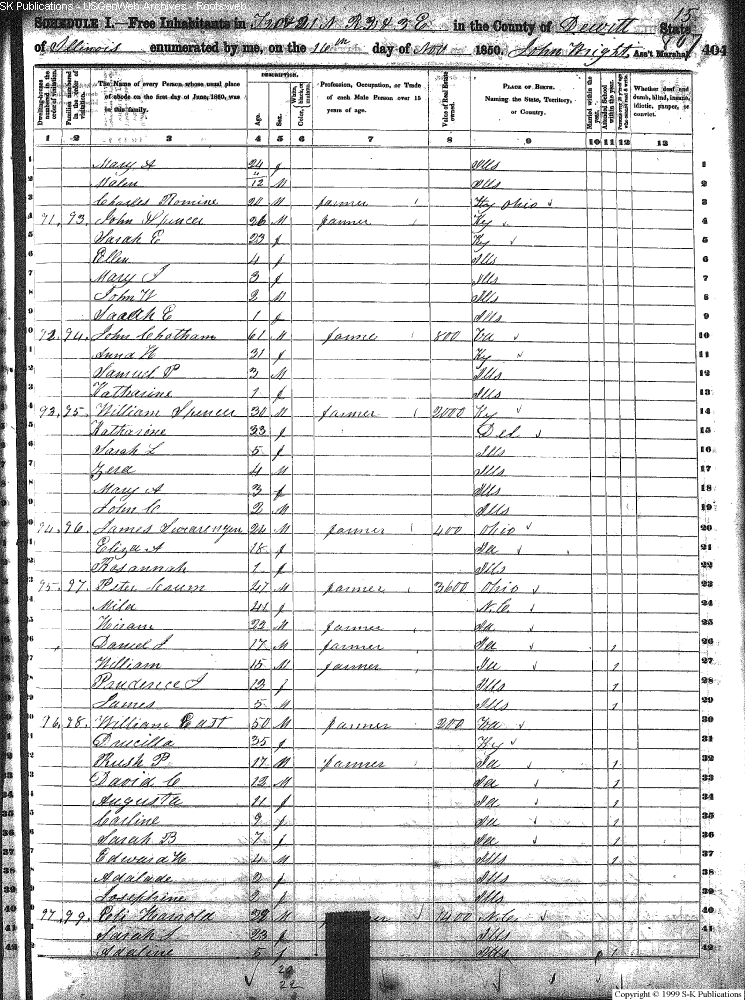 SK Publications - USGenWeb Archives - Rootsweb
15
SCHEDULE I.—Free Inhabitants in T 20 & 21 N R 3 & 2 E in the County of Dewitt State
of Illinois enumerated by me, on the 16th day of Nov 1850. John Wright Ass't Marshal. 807 404
DESCRIPTION.
Dwelling-houses numbered in the order of visitation.
Families numbered in the order of visitation.
The Name of every Person whose usual place of abode on the first day of June, 1850, was in this family.
Age.
Sex.
White, Color, black, or mulatto.
Profession, Occupation, or Trade of each Male Person over 15 years of age.
Value of Real Estate owned.
PLACE OF BIRTH. Naming the State, Territory, or Country.
Married within the year.
Attended School within the year.
Persons over 20 y'rs of age who cannot read & write.
Whether deaf and dumb, blind, insane, idiotic, pauper, or convict.
1 2 3 4 5 6 7 8 9 10 11 12 13
1 Mary A 24 f Ills 1
2 12 M Ills 2
3 Charles Romine 20 M farmer Ky Ohio 3
4 91 93 John Spencer 26 M farmer Ky 4
5 Sarah E 23 f Ky 5
6 Ellen 4 f Ills 6
7 Mary J 3 f Ills 7
8 John W 2 M Ills 8
9 Sarah E 1 f Ills 9
10 92 94 John Chatham 61 M farmer 800 Va 10
11 31 f Ky 11
12 Samuel P 3 M Ills 12
13 Katharine 1 f Ills 13
14 93 95 William Spencer 30 M farmer 2000 Ky 14
15 Katharine 33 f Del 15
16 Sarah L 5 f Ills 16
17 Zera 4 M Ills 17
18 Mary A 3 f Ills 18
19 John C 2 M Ills 19
20 94 96 James Swearengen 24 M farmer 400 Ohio 20
21 Eliza A 18 f Ia 21
22 Rosannah 1 f Ills 22
23 95 97 Peter Crum 47 M farmer 3600 Ohio 23
24 Mila 46 f N.C. 24
25 Hiram 22 M farmer Ia 25
26 Daniel J 17 M farmer Ia 1 26
27 William 15 M farmer Ia 1 27
28 Prudence J 13 f Ills 1 28
29 James 5 M Ills 1 29
30 96 98 William East 50 M farmer 200 Va 30
31 Drucilla 35 f Ky 31
32 Rush P 17 M farmer Ia 1 32
33 David C 12 M Ia 1 33
34 Augusta 11 f Ia 1 34
35 Carline 9 f Ia 1 35
36 Sarah B 7 f Ia 1 36
37 Edward H 4 M Ills 1 37
38 Adalade 2 f Ills 38
39 Josephine 2 f Ills 39
40 97 99 Eli Harrold 28 M farmer 1400 N.C. 40
41 Sarah S 23 f Ills 41
42 Adaline 5 f Ills 1 42
20
22
Copyright © 1999 S-K Publications